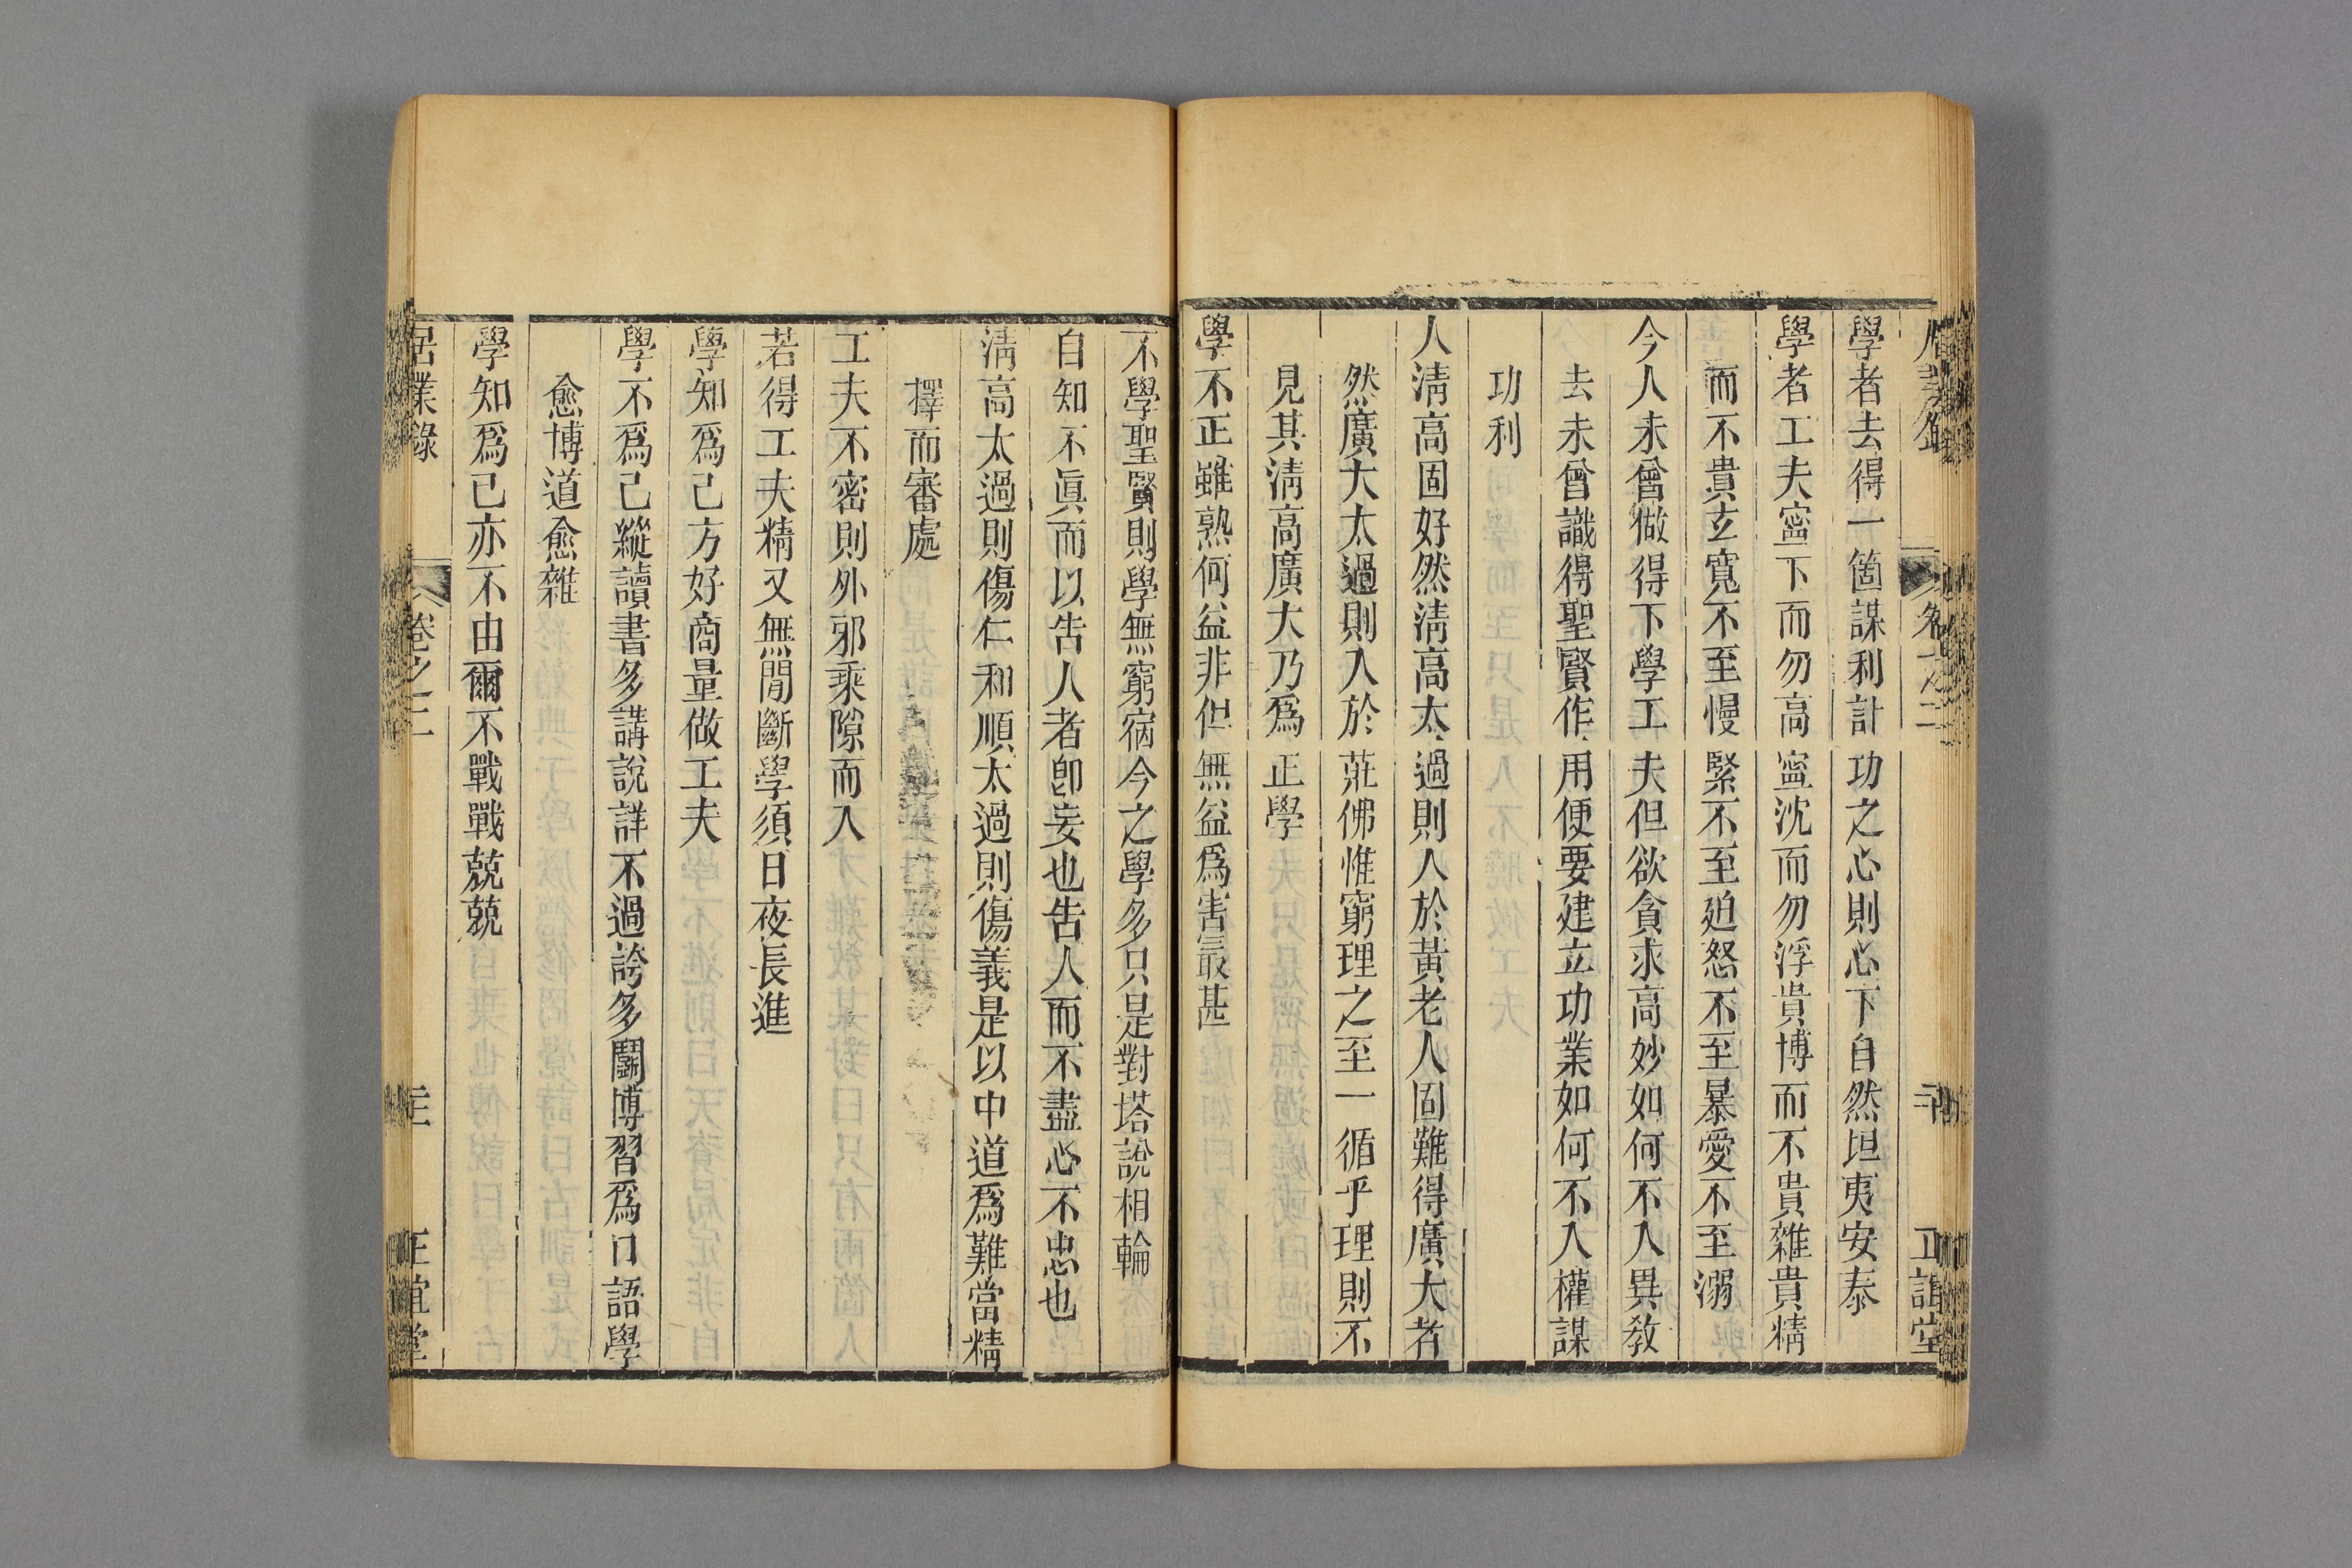 學者去得一箇謀利計功之心則心下自然坦夷安泰
學者工夫寧下而勿高寧沈而勿浮貴博而不貴雜貴精
而不貴玄寬不至慢緊不至廹怒不至暴愛不至溺
今人未曾做得下學工夫但欲貪求高妙如何不入異敎
去未曾識得聖賢作用便要建立功業如何不入權謀
功利
人淸高固好然淸高太過則入於黃老人固難得廣大者
然廣大太過則入於莊佛惟窮理之至一循乎理則不
見其淸高廣大乃爲正學
學不正雖熟何益非但無益爲害最甚
不學聖賢則學無窮病今之學多只是對塔說相輪
自知不眞而以告人者卽妄也告人而不盡心不忠也
淸高太過則傷仁和順太過則傷義是以中道爲難當精
擇而審處
工夫不密則外邪乘隙而入
若得工夫精又無閒斷學須日夜長進
學知爲己方好商量做工夫
學不爲己縱讀書多講說詳不過誇多鬬博習爲口語學
愈博道愈雜
學知爲己亦不由爾不戰戰兢兢
居業錄
卷之二
正誼堂